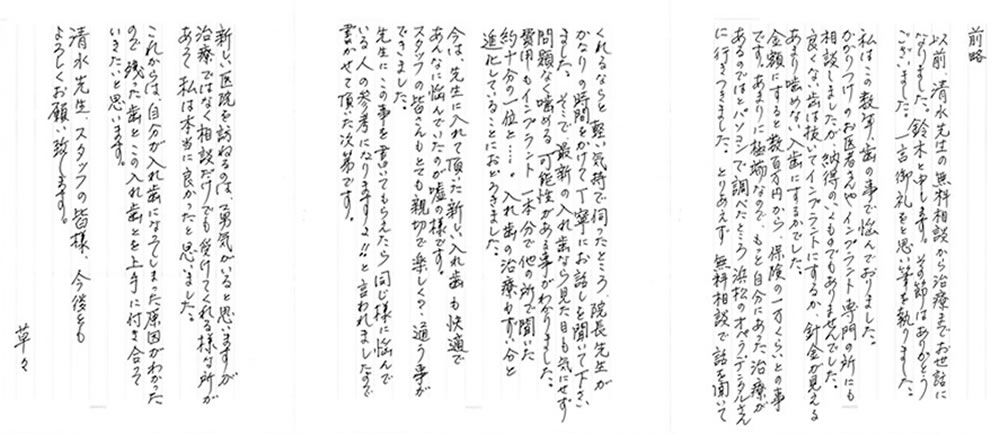 前略
以前、清水先生の無料相談から治療までお世話に
なりました。鈴木と申します。その節はありがとう
ございました。一言御礼をと思い筆を執りました。
私はこの数年、歯の事で悩んでおりました。
かかりつけのお医者さんやインプラント専門の所にも
相談しましたが納得のいくものでもありませんでした。
良くない歯は抜いてインプラントにするか、針金が見える
あまり噛めない入歯にするかでした。
金額にすると数百万円から、保険の一万くらいとの事
です。あまりに極端なので、もっと自分にあった治療が
あるのではとパソコンで調べたところ浜松のオーラルデンタルさん
に行きつきました。とりあえず無料相談で話を聞いて
くれるならと軽い気持で伺ったところ、院長先生が
かなりの時間をかけて丁寧にお話しを聞いて下さい
ました。そこで最新の入れ歯なら見た目も気にせず
問題なく噛める可能性がある事がわかりました。
費用もインプラント一本分で他の所で聞いた
約十分の一位と…。入れ歯の治療もずい分と
進化していることにおどろきました。
今は、先生に入れて頂いた新しい入れ歯も快適で
あんなに悩んでいたのが嘘の様です。
スタッフの皆さんもとても親切で楽しく？通う事が
できました。
先生にこの事を書いてもらえたら同じ様に悩んで
いる人の参考になりますよ!!と言われましたので
書かせて頂いた次第です。
新しい医院を訪ねるのは、勇気がいると思いますが
治療ではなく相談だけでも受けてくれる様な所が
あって私は本当に良かったと思いました。
これからは、自分が入れ歯になってしまった原因がわかった
ので残った歯とこの入れ歯とを上手に付き合って
いきたいと思います。
清水先生、スタッフの皆様、今後とも
よろしくお願い致します。
草々